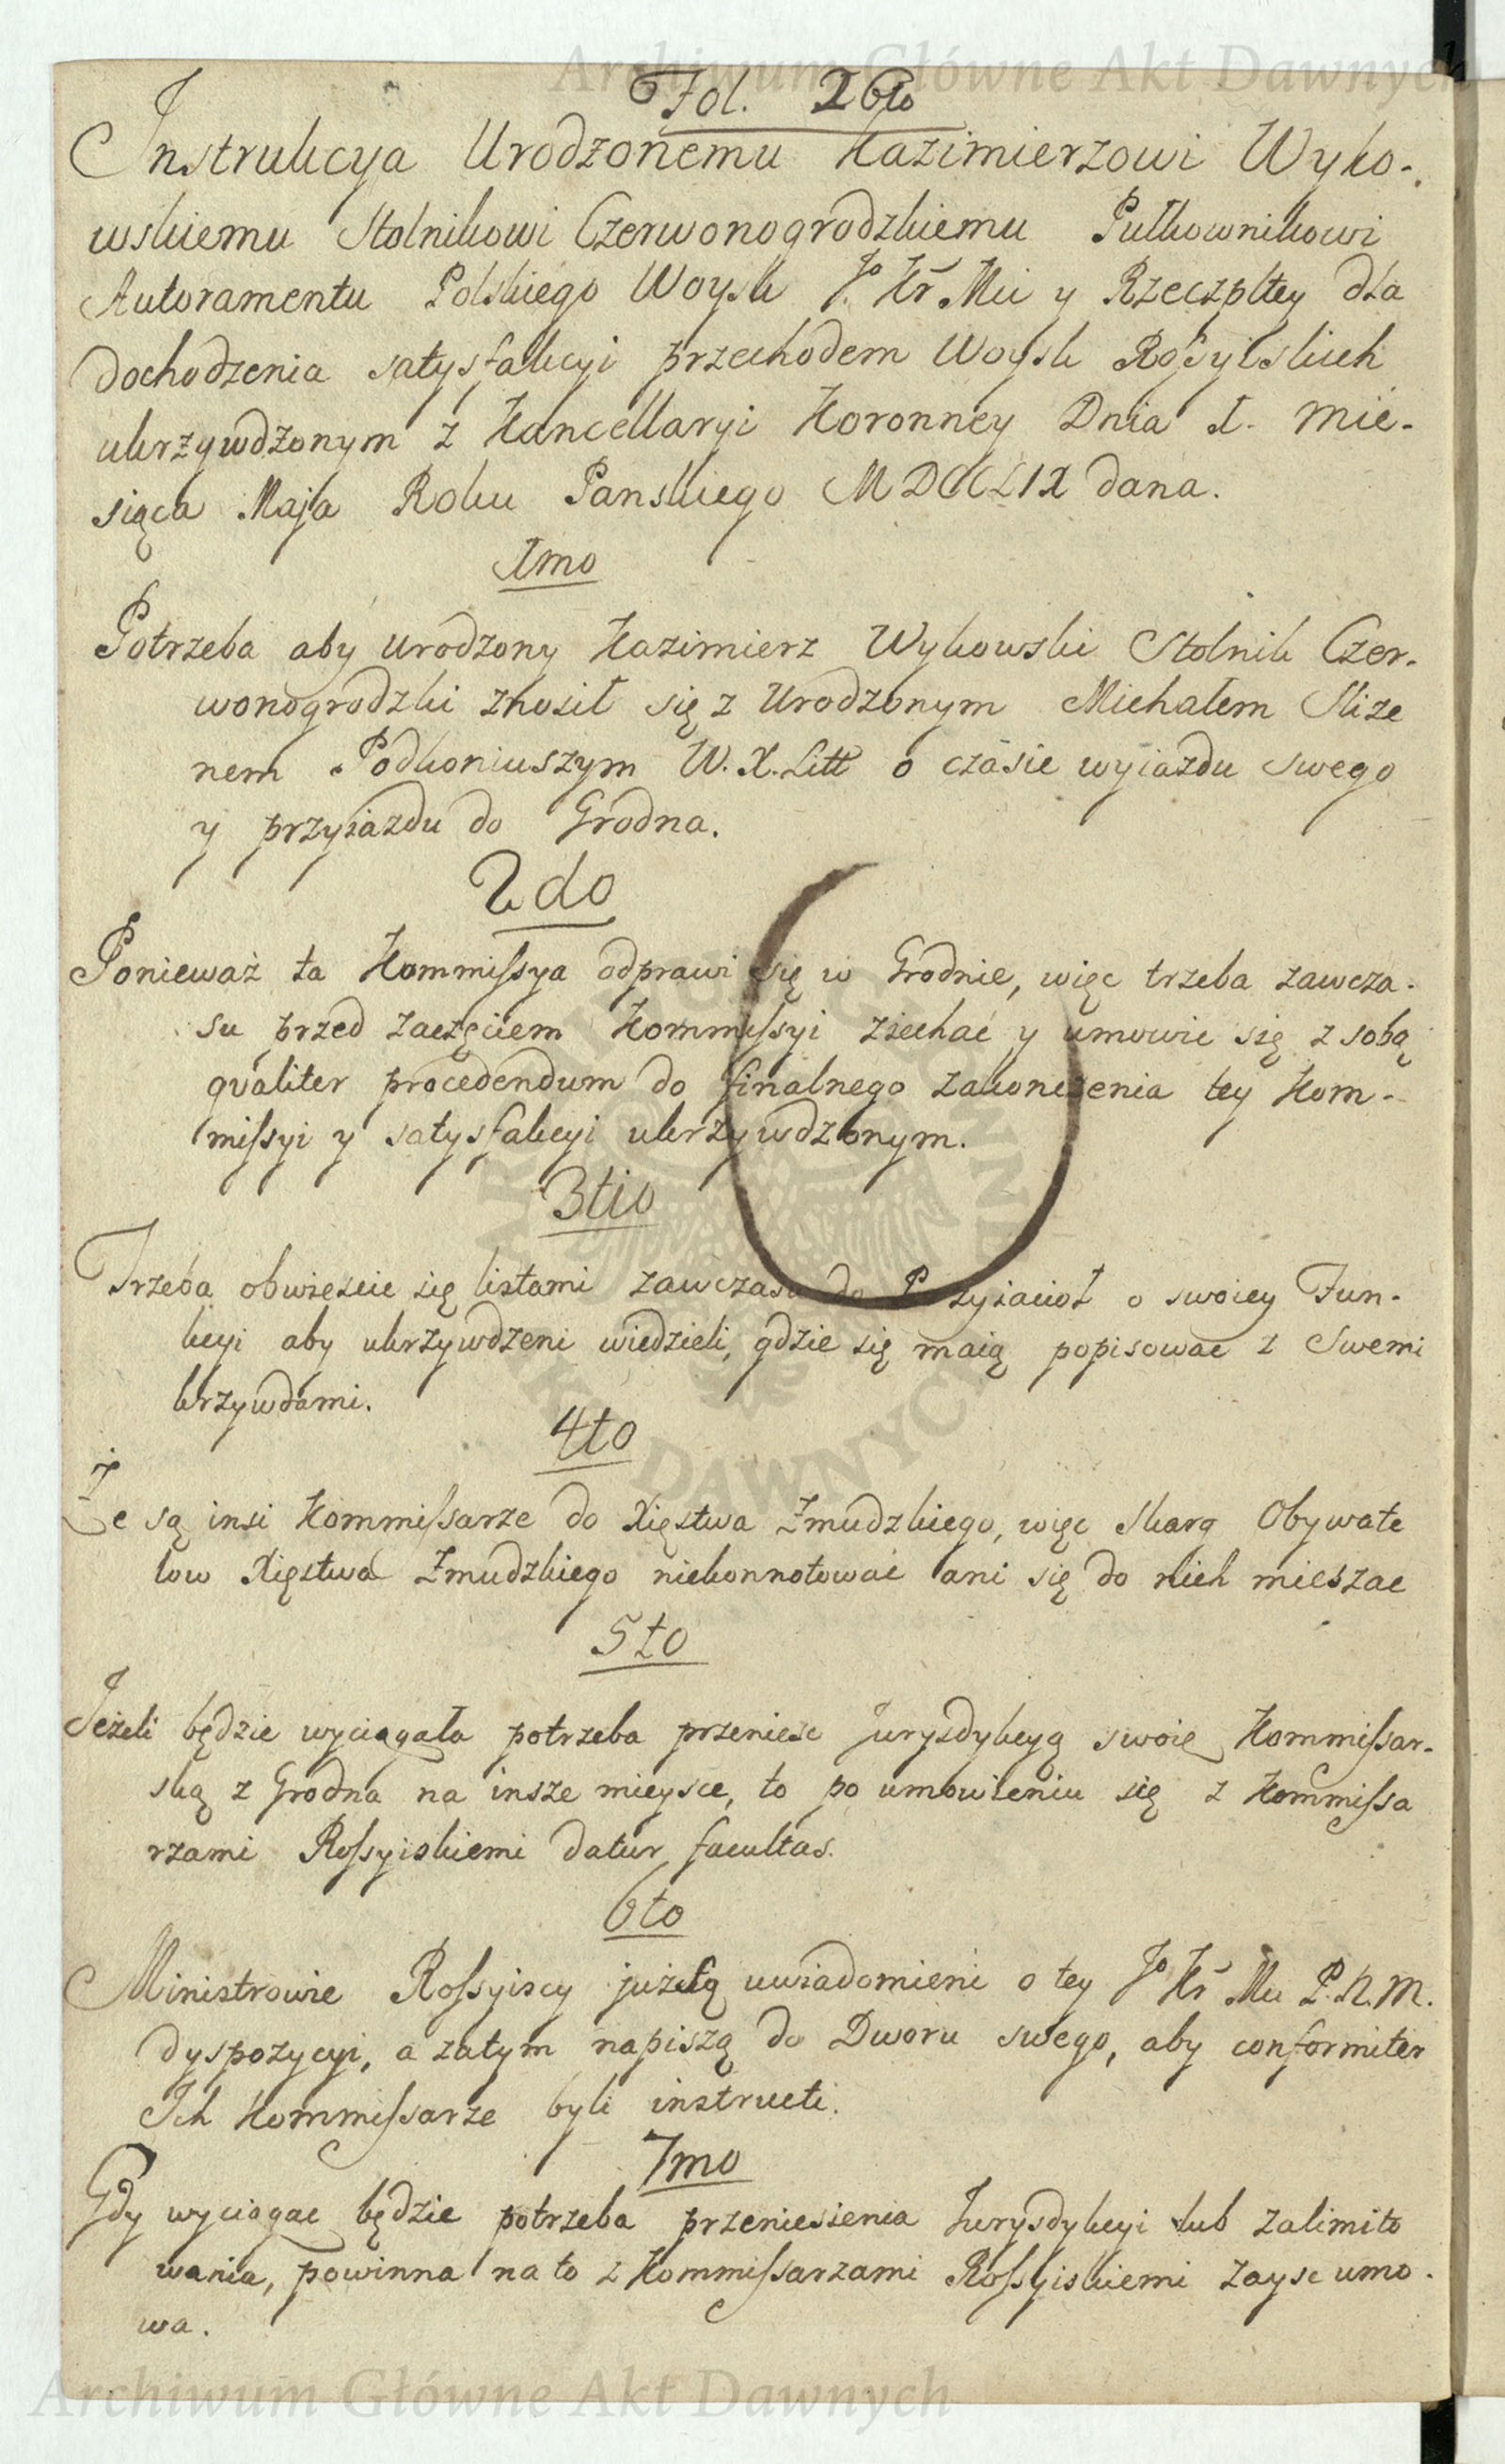 Archiwum Główne Akt Dawnych
Fol. 26to
Instrukcya Urodzonemu Kazimierzowi Wyko-
wskiemu Stolnikowi Czerwonogrodzkiemu Pułkownikowi
Autoramentu Polskiego Woysk Jo Kr Mci y Rzeczpltey dla
dochodzenia satysfakcyi przechodem Woysk Rossyiskich
ukrzywdzonym z Kancellaryi Koronney Dnia 1. Mie-
siąca Maja Roku Panskiego MDCCLIX dana.
1mo
Potrzeba aby Urodzony Kazimierz Wykowski Stolnik Czer-
wonogrodzki znosił się z Urodzonym Michałem Slize
nem Podkoniuszym W. X. Litt o czasie wyiazdu swego
y przyiazdu do Grodna.
2do
Ponieważ ta Kommissya odprawi się w Grodnie, więc trzeba zawcza-
su przed zaczęciem Kommissyi ziechać y umowic się z sobą
qvaliter procedendum do finalnego zakonczenia tey Kom-
missyi y satysfakcyi ukrzywdzonym.
3tio
Trzeba obwiescic się listami zawczasu do Przyiacioł o swoiey Fun-
kcyi aby ukrzywdzeni wiedzieli, gdzie się maią popisowac z Swemi
krzywdami.
4to
Że są insi Kommissarze do Xięstwa Żmudzkiego, więc skarg Obywate
low Xięstwa Żmudzkiego niekonnotować ani się do nich mieszac
5to
Jeżeli będzie wyciągała potrzeba przeniesc Jurysdykcyą swoię Kommissar-
ską z Grodna na insze mieysce, to po umowieniu się z Kommissa
rzami Rossyiskiemi datur facultas.
6to
Ministrowie Rossyiscy już są uwiadomieni o tey Jo Kr Mci P. N. M.
dyspozycyi, a zatym napiszą do Dworu swego, aby conformiter
Ich Kommissarze byli instructi.
7mo
Gdy wyciągac będzie potrzeba przeniesienia Jurysdykcyi lub zalimito
wania, powinna na to z Kommissarzami Rossyiskiemi zaysc umo-
wa.
Archiwum Główne Akt Dawnych